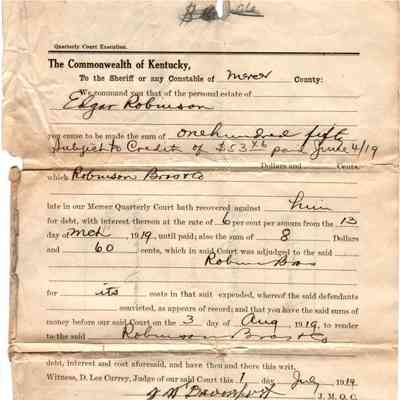 Quarterly Court Execution.
The Commonwealth of Kentucky,
To the Sheriff or any Constable of Mercer County:
We command you that of the personal estate of
Edgar Robinson
you cause to be made the sum of one hundred fifty
Subject to Credit of $53 46 paid June 4/19
Dollars and Cents,
which Robinson Bros & Co
late in our Mercer Quarterly Court hath recovered against him
for debt, with interest thereon at the rate of 6 per cent per annum from the 13
day of Mch 1919, until paid; also the sum of 8 Dollars
and 60 cents, which in said Court was adjudged to the said
Robinson Bros
for its costs in that suit expended, whereof the said defendants
convicted, as appears of record; and that you have the said sums
of money before our said Court on the 3 day of Aug 1919, to render
to the said Robinson Bros & Co
debt, interest and cost aforesaid, and have then and there this writ.
Witness, D. Lee Currey, Judge of our said Court this 1 day July 1919
J. M. Q. C.